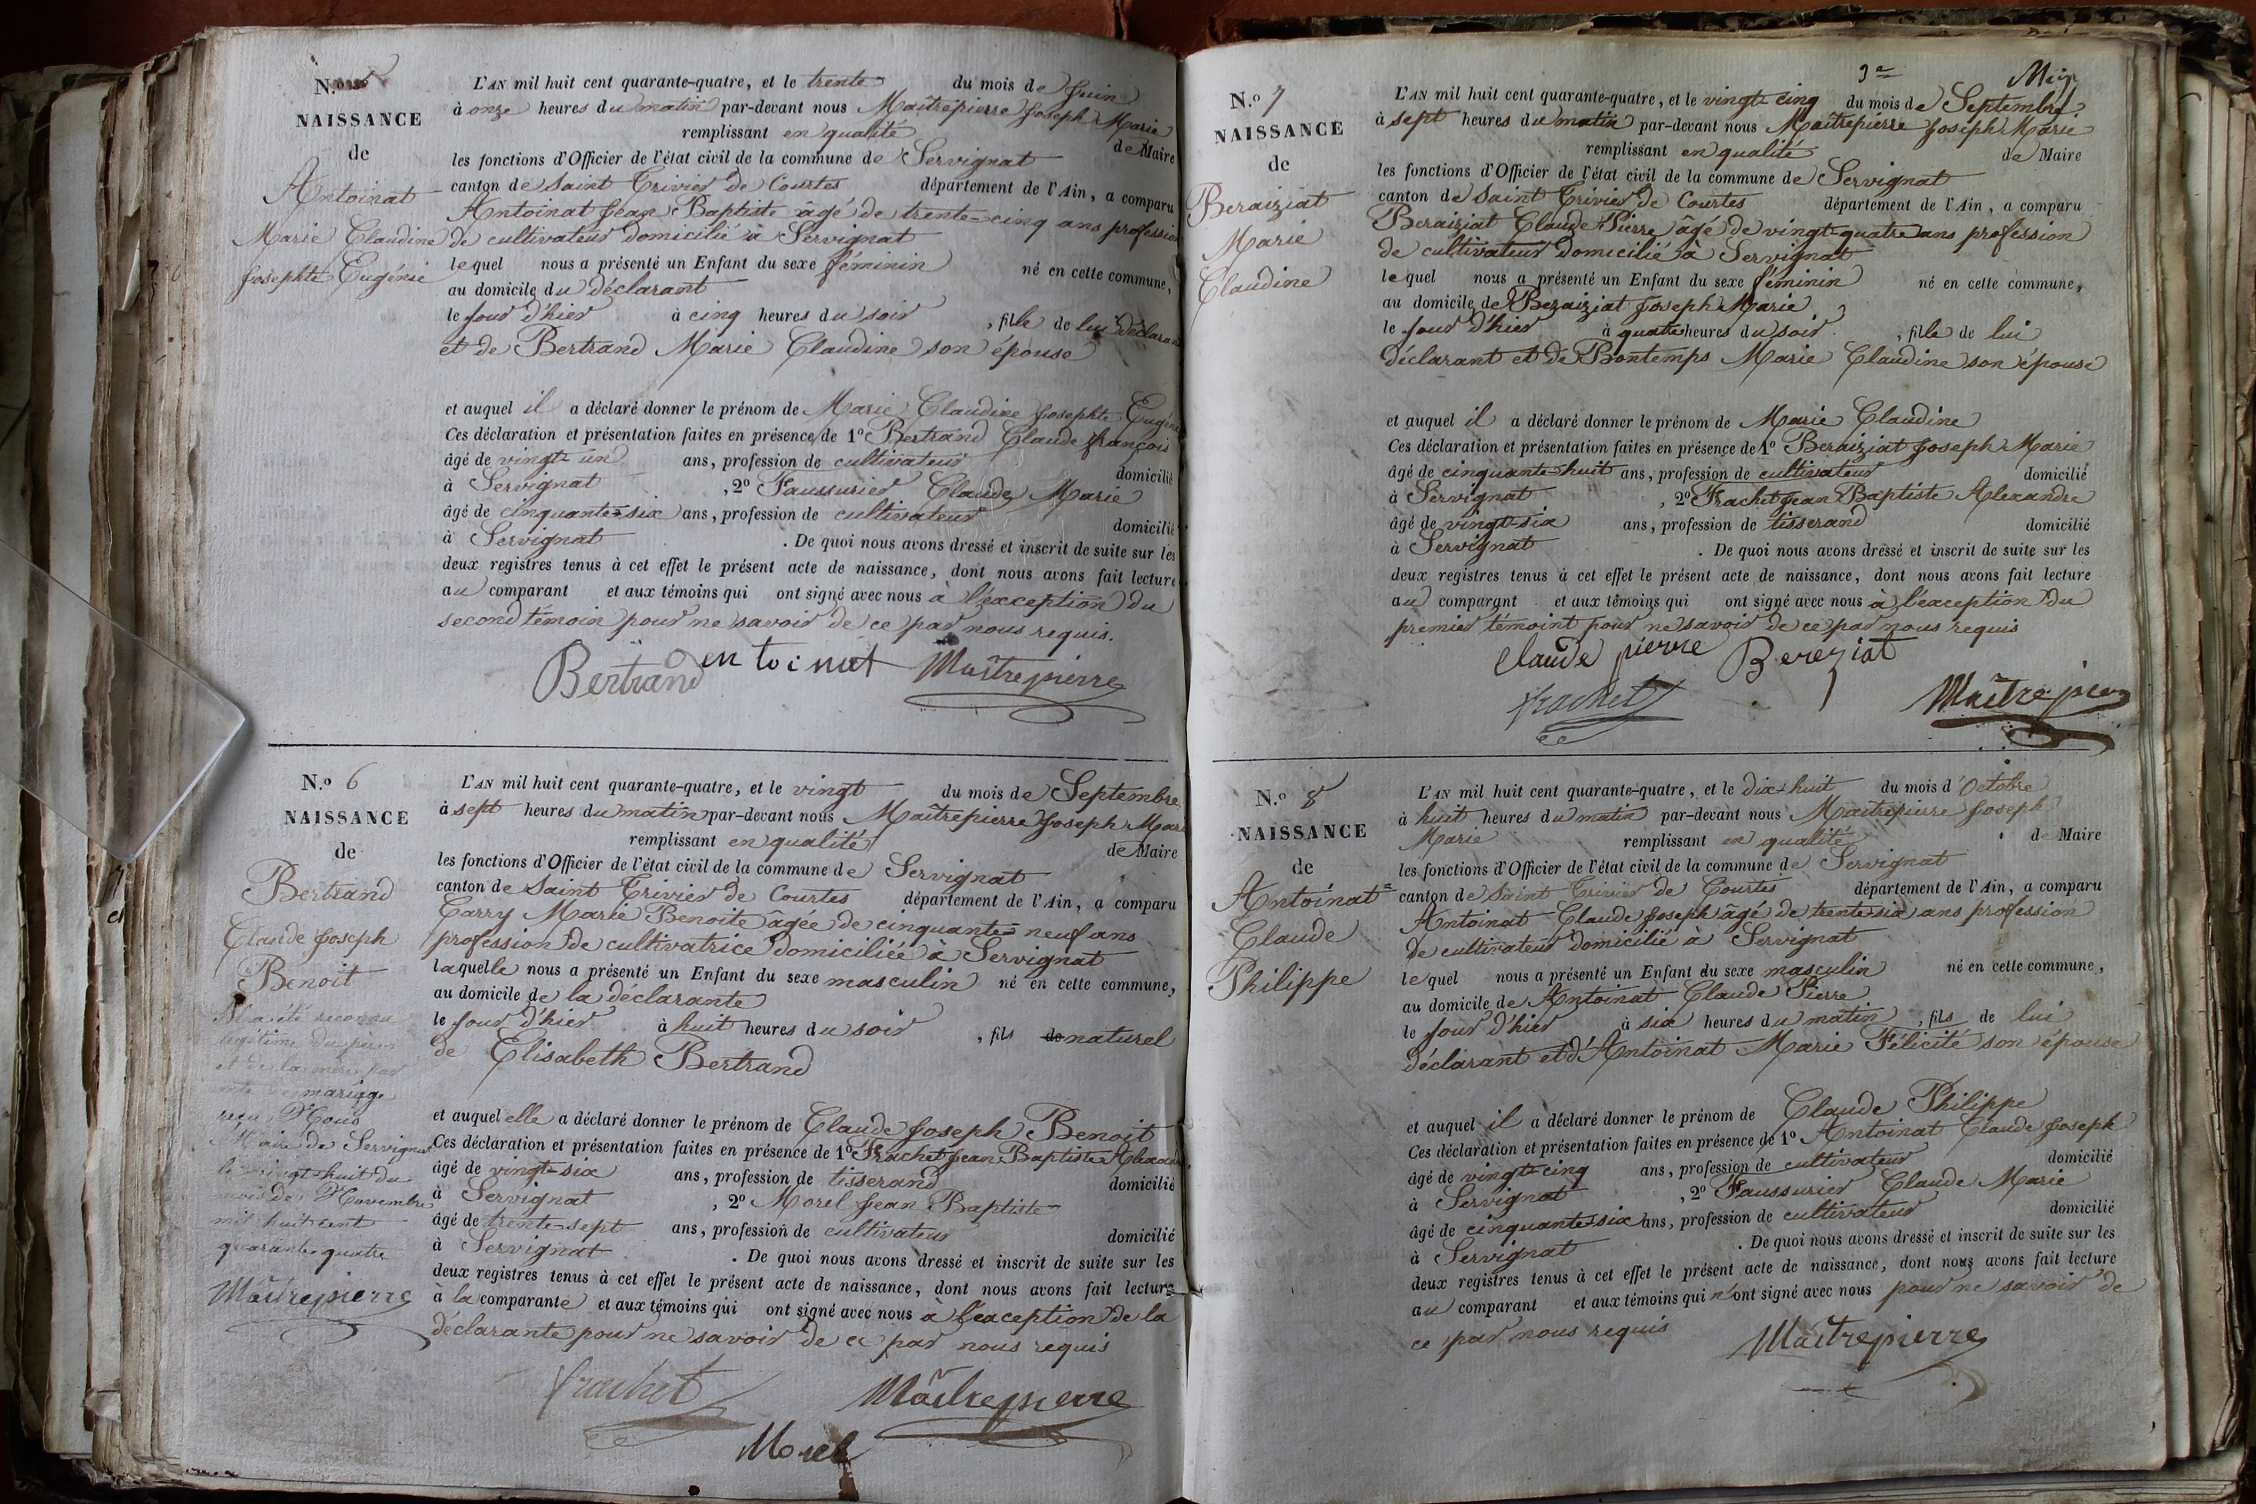 N.º
NAISSANCE
de
Antoinat
Marie Claudine
Josephte Eugénie
L'AN mil huit cent quarante-quatre, et le trente du mois de Juin
à onze heures du matin par-devant nous Maîtrepierre Joseph Marie
remplissant en qualité de Maire
les fonctions d'Officier de l'état civil de la commune de Servignat
canton de Saint Trivier de Courtes département de l'Ain, a comparu
Antoinat Jean Baptiste âgé de trente-cinq ans profession
de cultivateur domicilié à Servignat
lequel nous a présenté un Enfant du sexe féminin né en cette commune,
au domicile du déclarant
le jour d'hier à cinq heures du soir, fille de lui déclarant
et de Bertrand Marie Claudine son épouse
et auquel il a déclaré donner le prénom de Marie Claudine Josephte Eugénie
Ces déclaration et présentation faites en présence de 1º Bertrand Claude françois
âgé de vingt-un ans, profession de cultivateur domicilié
à Servignat, 2º Faussurier Claude Marie
âgé de cinquante-six ans, profession de cultivateur domicilié
à Servignat. De quoi nous avons dressé et inscrit de suite sur les
deux registres tenus à cet effet le présent acte de naissance, dont nous avons fait lecture
au comparant et aux témoins qui ont signé avec nous à l'exception du
second témoin pour ne savoir de ce par nous requis.
Bertrand antoinat Maîtrepierre
N.º 6
NAISSANCE
de
Bertrand
Claude Joseph
Benoit
Il a été reconnu
légitime du père
et de la mère par
mariage
reçu Nous
Maire de Servignat
le vingt-huit du
mois de Novembre
mil huit cent
quarante-quatre
Maîtrepierre
L'AN mil huit cent quarante-quatre, et le vingt du mois de Septembre
à sept heures du matin par-devant nous Maîtrepierre Joseph Marie
remplissant en qualité de Maire
les fonctions d'Officier de l'état civil de la commune de Servignat
canton de Saint Trivier de Courtes département de l'Ain, a comparu
Carry Marie Benoite âgée de cinquante-neuf ans
profession de cultivatrice domiciliée à Servignat
laquelle nous a présenté un Enfant du sexe masculin né en cette commune,
au domicile de la déclarante
le jour d'hier à huit heures du soir, fils de naturel
de Elisabeth Bertrand
et auquel elle a déclaré donner le prénom de Claude Joseph Benoit
Ces déclaration et présentation faites en présence de 1º Frachet Jean Baptiste Alexandre
âgé de vingt-six ans, profession de tisserand domicilié
à Servignat, 2º Morel Jean Baptiste
âgé de trente-sept ans, profession de cultivateur domicilié
à Servignat. De quoi nous avons dressé et inscrit de suite sur les
deux registres tenus à cet effet le présent acte de naissance, dont nous avons fait lecture
à la comparante et aux témoins qui ont signé avec nous à l'exception de la
déclarante pour ne savoir de ce par nous requis
frachet Maîtrepierre
Morel
N.º 7
NAISSANCE
de
Beraiziat
Marie
Claudine
L'AN mil huit cent quarante-quatre, et le vingt-cinq du mois de Septembre
à sept heures du matin par-devant nous Maîtrepierre Joseph Marie
remplissant en qualité de Maire
les fonctions d'Officier de l'état civil de la commune de Servignat
canton de Saint Trivier de Courtes département de l'Ain, a comparu
Beraiziat Claude Pierre âgé de vingt-quatre ans profession
de cultivateur domicilié à Servignat
lequel nous a présenté un Enfant du sexe féminin né en cette commune,
au domicile de Beraiziat Joseph Marie
le jour d'hier à quatre heures du soir, fille de lui
déclarant et de Bontemps Marie Claudine son épouse
et auquel il a déclaré donner le prénom de Marie Claudine
Ces déclaration et présentation faites en présence de 1º Beraiziat Joseph Marie
âgé de cinquante-huit ans, profession de cultivateur domicilié
à Servignat, 2º Frachet Jean Baptiste Alexandre
âgé de vingt-six ans, profession de tisserand domicilié
à Servignat. De quoi nous avons dressé et inscrit de suite sur les
deux registres tenus à cet effet le présent acte de naissance, dont nous avons fait lecture
au comparant et aux témoins qui ont signé avec nous à l'exception du
premier témoint pour ne savoir de ce par nous requis
Claude pierre Bereziat
frachet Maîtrepierre
N.º 8
NAISSANCE
de
Antoinat
Claude
Philippe
L'AN mil huit cent quarante-quatre, et le dix-huit du mois d'Octobre
à huit heures du matin par-devant nous Maitrepierre Joseph
Marie remplissant en qualité de Maire
les fonctions d'Officier de l'état civil de la commune de Servignat
canton de Saint Trivier de Courtes département de l'Ain, a comparu
Antoinat Claude Joseph âgé de trente-six ans profession
de cultivateur domicilié à Servignat
lequel nous a présenté un Enfant du sexe masculin né en cette commune,
au domicile de Antoinat Claude Pierre
le jour d'hier à six heures du matin, fils de lui
déclarant et d'Antoinat Marie Félicité son épouse
et auquel il a déclaré donner le prénom de Claude Philippe
Ces déclaration et présentation faites en présence de 1º Antoinat Claude Joseph
âgé de vingt-cinq ans, profession de cultivateur domicilié
à Servignat, 2º Faussurier Claude Marie
âgé de cinquante-six ans, profession de cultivateur domicilié
à Servignat. De quoi nous avons dressé et inscrit de suite sur les
deux registres tenus à cet effet le présent acte de naissance, dont nous avons fait lecture
au comparant et aux témoins qui n'ont signé avec nous pour ne savoir de
ce par nous requis
Maîtrepierre